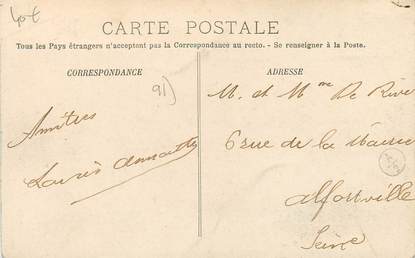 CARTE POSTALE
Tous les Pays étrangers n'acceptent pas la Correspondance au recto. - Se renseigner à la Poste.
CORRESPONDANCE
ADRESSE
91)
M. et Mme De Rive
Amitiés
6 rue de la Mairie
Louis
Alfortville
Seine